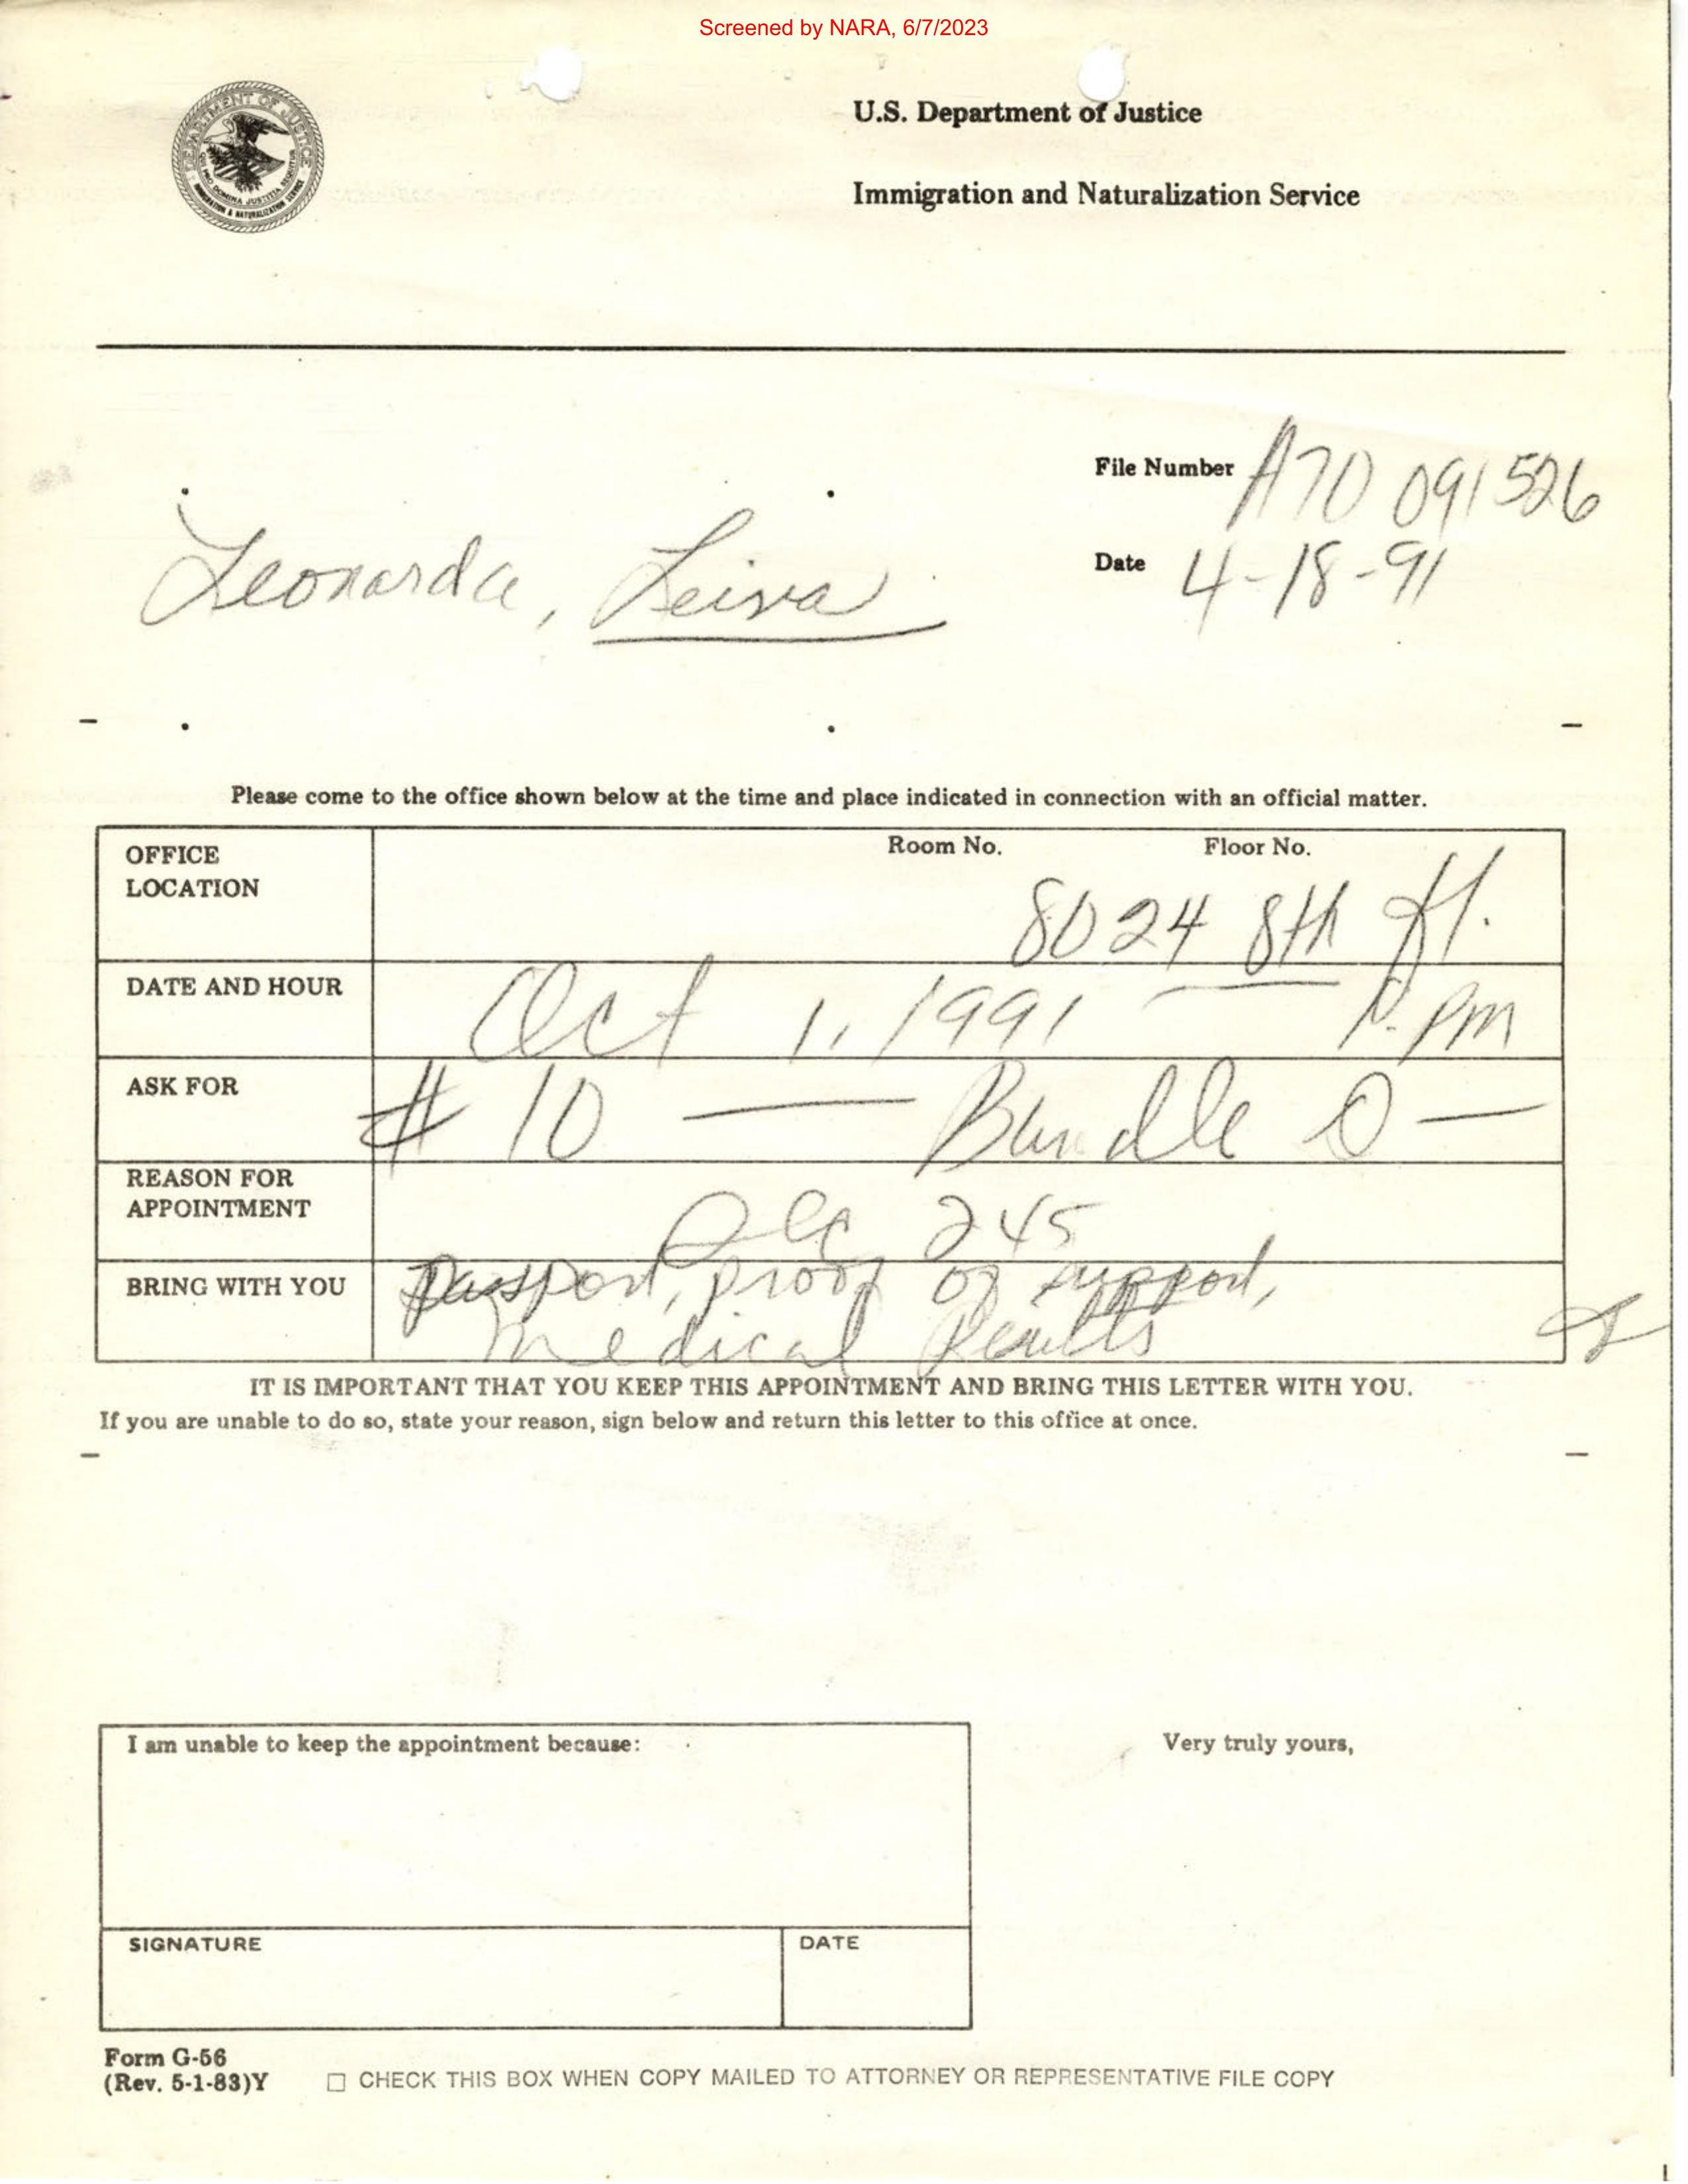 Screened by NARA, 6/7/2023
DEPARTMENT OF JUSTICE
QUI PRO DOMINA JUSTITIA SEQUITUR
IMMIGRATION & NATURALIZATION SERVICE
U.S. Department of Justice
Immigration and Naturalization Service
File Number A70 091526
Date 4-18-91
Leonarda, Leiva
Please come to the office shown below at the time and place indicated in connection with an official matter.
OFFICE LOCATION
Room No. Floor No.
8024 8th fl.
DATE AND HOUR
Oct 1, 1991 — PM
ASK FOR
# 10 — Bundle O —
REASON FOR APPOINTMENT
245
BRING WITH YOU
Passport, proof of support,
Medical Results
IT IS IMPORTANT THAT YOU KEEP THIS APPOINTMENT AND BRING THIS LETTER WITH YOU.
If you are unable to do so, state your reason, sign below and return this letter to this office at once.
I am unable to keep the appointment because:
Very truly yours,
SIGNATURE
DATE
Form G-56
(Rev. 5-1-83)Y ☐ CHECK THIS BOX WHEN COPY MAILED TO ATTORNEY OR REPRESENTATIVE FILE COPY